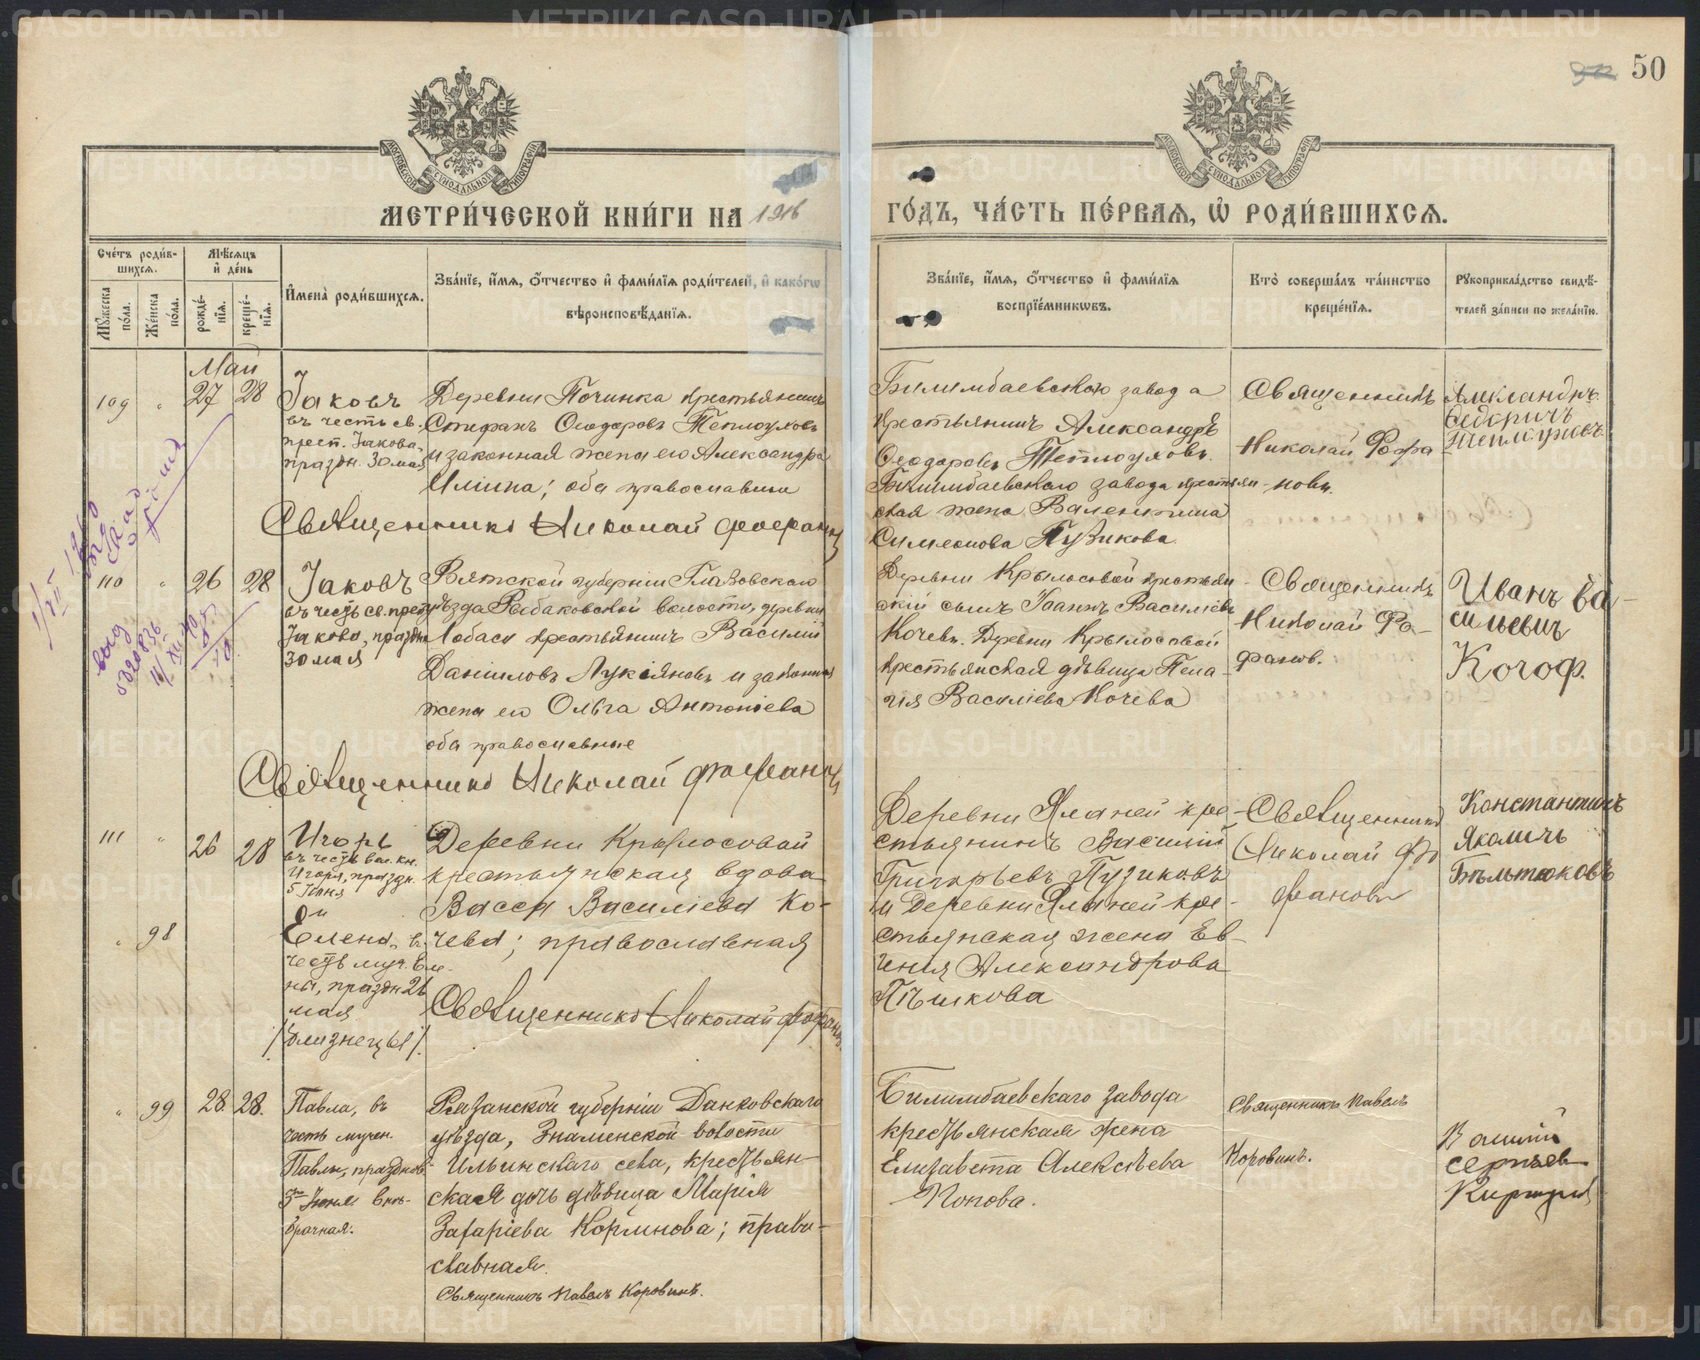 50
МЕТРИ́ЧЕСКОЙ КНИ́ГИ НА 1916 ГО́ДЪ, ЧА́СТЬ ПЕ́РВАЯ, Ѡ҆ РОДИ́ВШИХСЯ.
Сче́тъ роди́в-
шихся.
Мѣ́сяцъ
и҆ де́нь
Мꙋ́жеска
по́ла.
Же́нска
по́ла.
рожде́-
нїя.
креще́-
нїя.
И҆мена̀ роди́вшихся.
Зва́нїе, и҆́мя, ѻ҆́тчество и҆ фами́лїя роди́телей, и҆ како́гѡ
вѣроисповѣ́данїя.
Зва́нїе, и҆́мя, ѻ҆́тчество и҆ фами́лїя
воспрїе́мникѡвъ.
Кто̀ соверша́лъ та́инство
креще́нїя.
Рꙋкоприкла́дство свидѣ́-
телей за́писи по жела́нїю.
Май
109 " 27 28
Іаковъ
въ честь св.
прест. Іакова.
праздн. 30 мая
Деревни Починка крестьянинъ
Стефанъ Ѳеодоровъ Теплоуховъ
и законная жена его Александра
Ильина; оба православные
Священникъ Николай Фофановъ
Билимбаевскаго завода
крестьянинъ Александръ
Ѳеодоровъ Теплоуховъ.
Билимбаевскаго завода крестьян-
ская жена Валентина
Симеонова Пузикова
Священникъ
Николай Фофа
новъ.
Александръ
Федоричъ
Теплоуховъ
110 " 26 28
Іаковъ
въ честь св. прест.
Іакова, праздн.
30 мая
Вятской губерніи Глазовскаго
уѣзда Рыбаковской волости, деревни
Лобаси крестьянинъ Василій
Даниловъ Лукіяновъ и законная
жена его Ольга Антоніева
оба православные
Священникъ Николай Фофановъ
Деревни Крылосовой крестьян-
скій сынъ Іоаннъ Василіевъ
Кочевъ. Деревни Крылосовой
крестьянская дѣвица Пела-
гія Василіева Кочева
Священникъ
Николай Фо-
фановъ.
Иванъ Ва-
сильевич
Кочоф.
111 " 26 28
Игорь
въ честь вел. кн.
Игоря, праздн.
5 Іюня
и
" 98
Елена, въ
честь муч. Еле-
ны, праздн 26
мая
/близнецы/.
Деревни Крылосовой
крестьянская вдова
Васса Василіева Ко-
чева; православная
Священникъ Николай Фофановъ
Деревни Яланей кре-
стьянинъ Василій
Григорьевъ Пузиковъ
и Деревни Яланей кре-
стьянская жена Ев-
генія Александрова
Пѣшкова
Священникъ
Николай Фо
фановъ
Константинъ
Якаличь
Бѣльтюковъ
" 99 28. 28.
Павла, въ
честь мучен.
Павлы, празднов.
3го Іюня. Внѣ-
брачная.
Рязанской губерніи Данковскаго
уѣзда, Знаменской волости
Ильинскаго села, крестьян-
ская дочь дѣвица Марія
Захаріева Кормнова; право-
славная.
Священникъ Павелъ Коровинъ.
Билимбаевскаго завода
крестьянская жена
Елизавета Алексѣева
Попова.
Священникъ Павелъ
Коровинъ.
METRIKI.GASO-URAL.RU